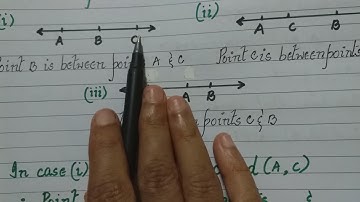 (i) (ii)
A B C A B
Point B is between points A & C Point C is between points
(iii) A B
points C & B
In case (i) and (A, C)
: Point &